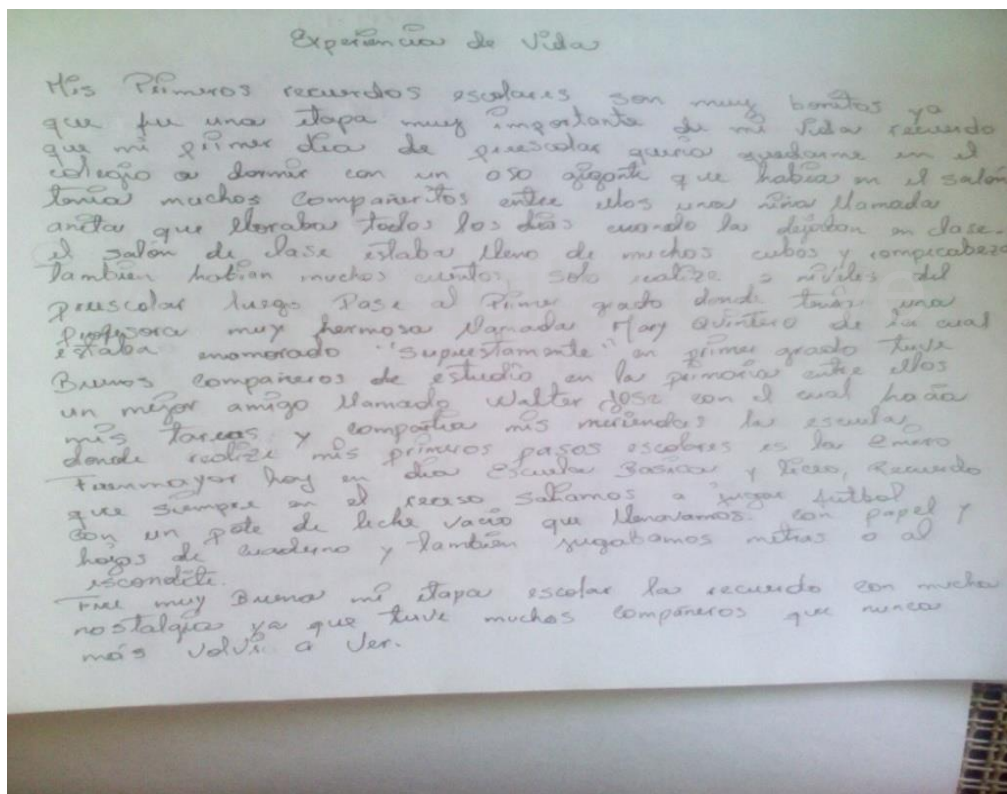 Experiencia de Vida
Mis Primeros recuerdos escolares son muy bonitos ya
que fue una etapa muy importante de mi vida recuerdo
que mi primer dia de preescolar queria quedarme en el
colegio a dormir con un oso gigante que habia en el salón
tenia muchos compañeritos entre ellos una niña llamada
anita que lloraba todos los dias cuando la dejaban en clase.
el salón de clase estaba lleno de muchos cubos y rompecabeza
tambien habian muchos cuentos, solo realize 2 niveles del
preescolar luego Pase al Primer grado donde tenia una
Profesora muy hermosa llamada Mary Quintero de la cual
estaba enamorado "supuestamente" en primer grado tuve
Buenos compañeros de estudio en la primaria entre ellos
un mejor amigo llamado Walter Jose con el cual hacia
mis tareas y compartia mis meriendas la escuela
donde realize mis primeros pasos escolares es la
hoy en dia Escuela Basica y Liceo, Recuerdo
que siempre en el receso saliamos a jugar futbol
con un pote de leche vacio que llenavamos con papel y
hojas de cuaderno y tambien jugabamos metras o al
escondite.
Fue muy Buena mi etapa escolar la recuerdo con mucha
nostalgia ya que tuve muchos compañeros que nunca
más volvi a ver.